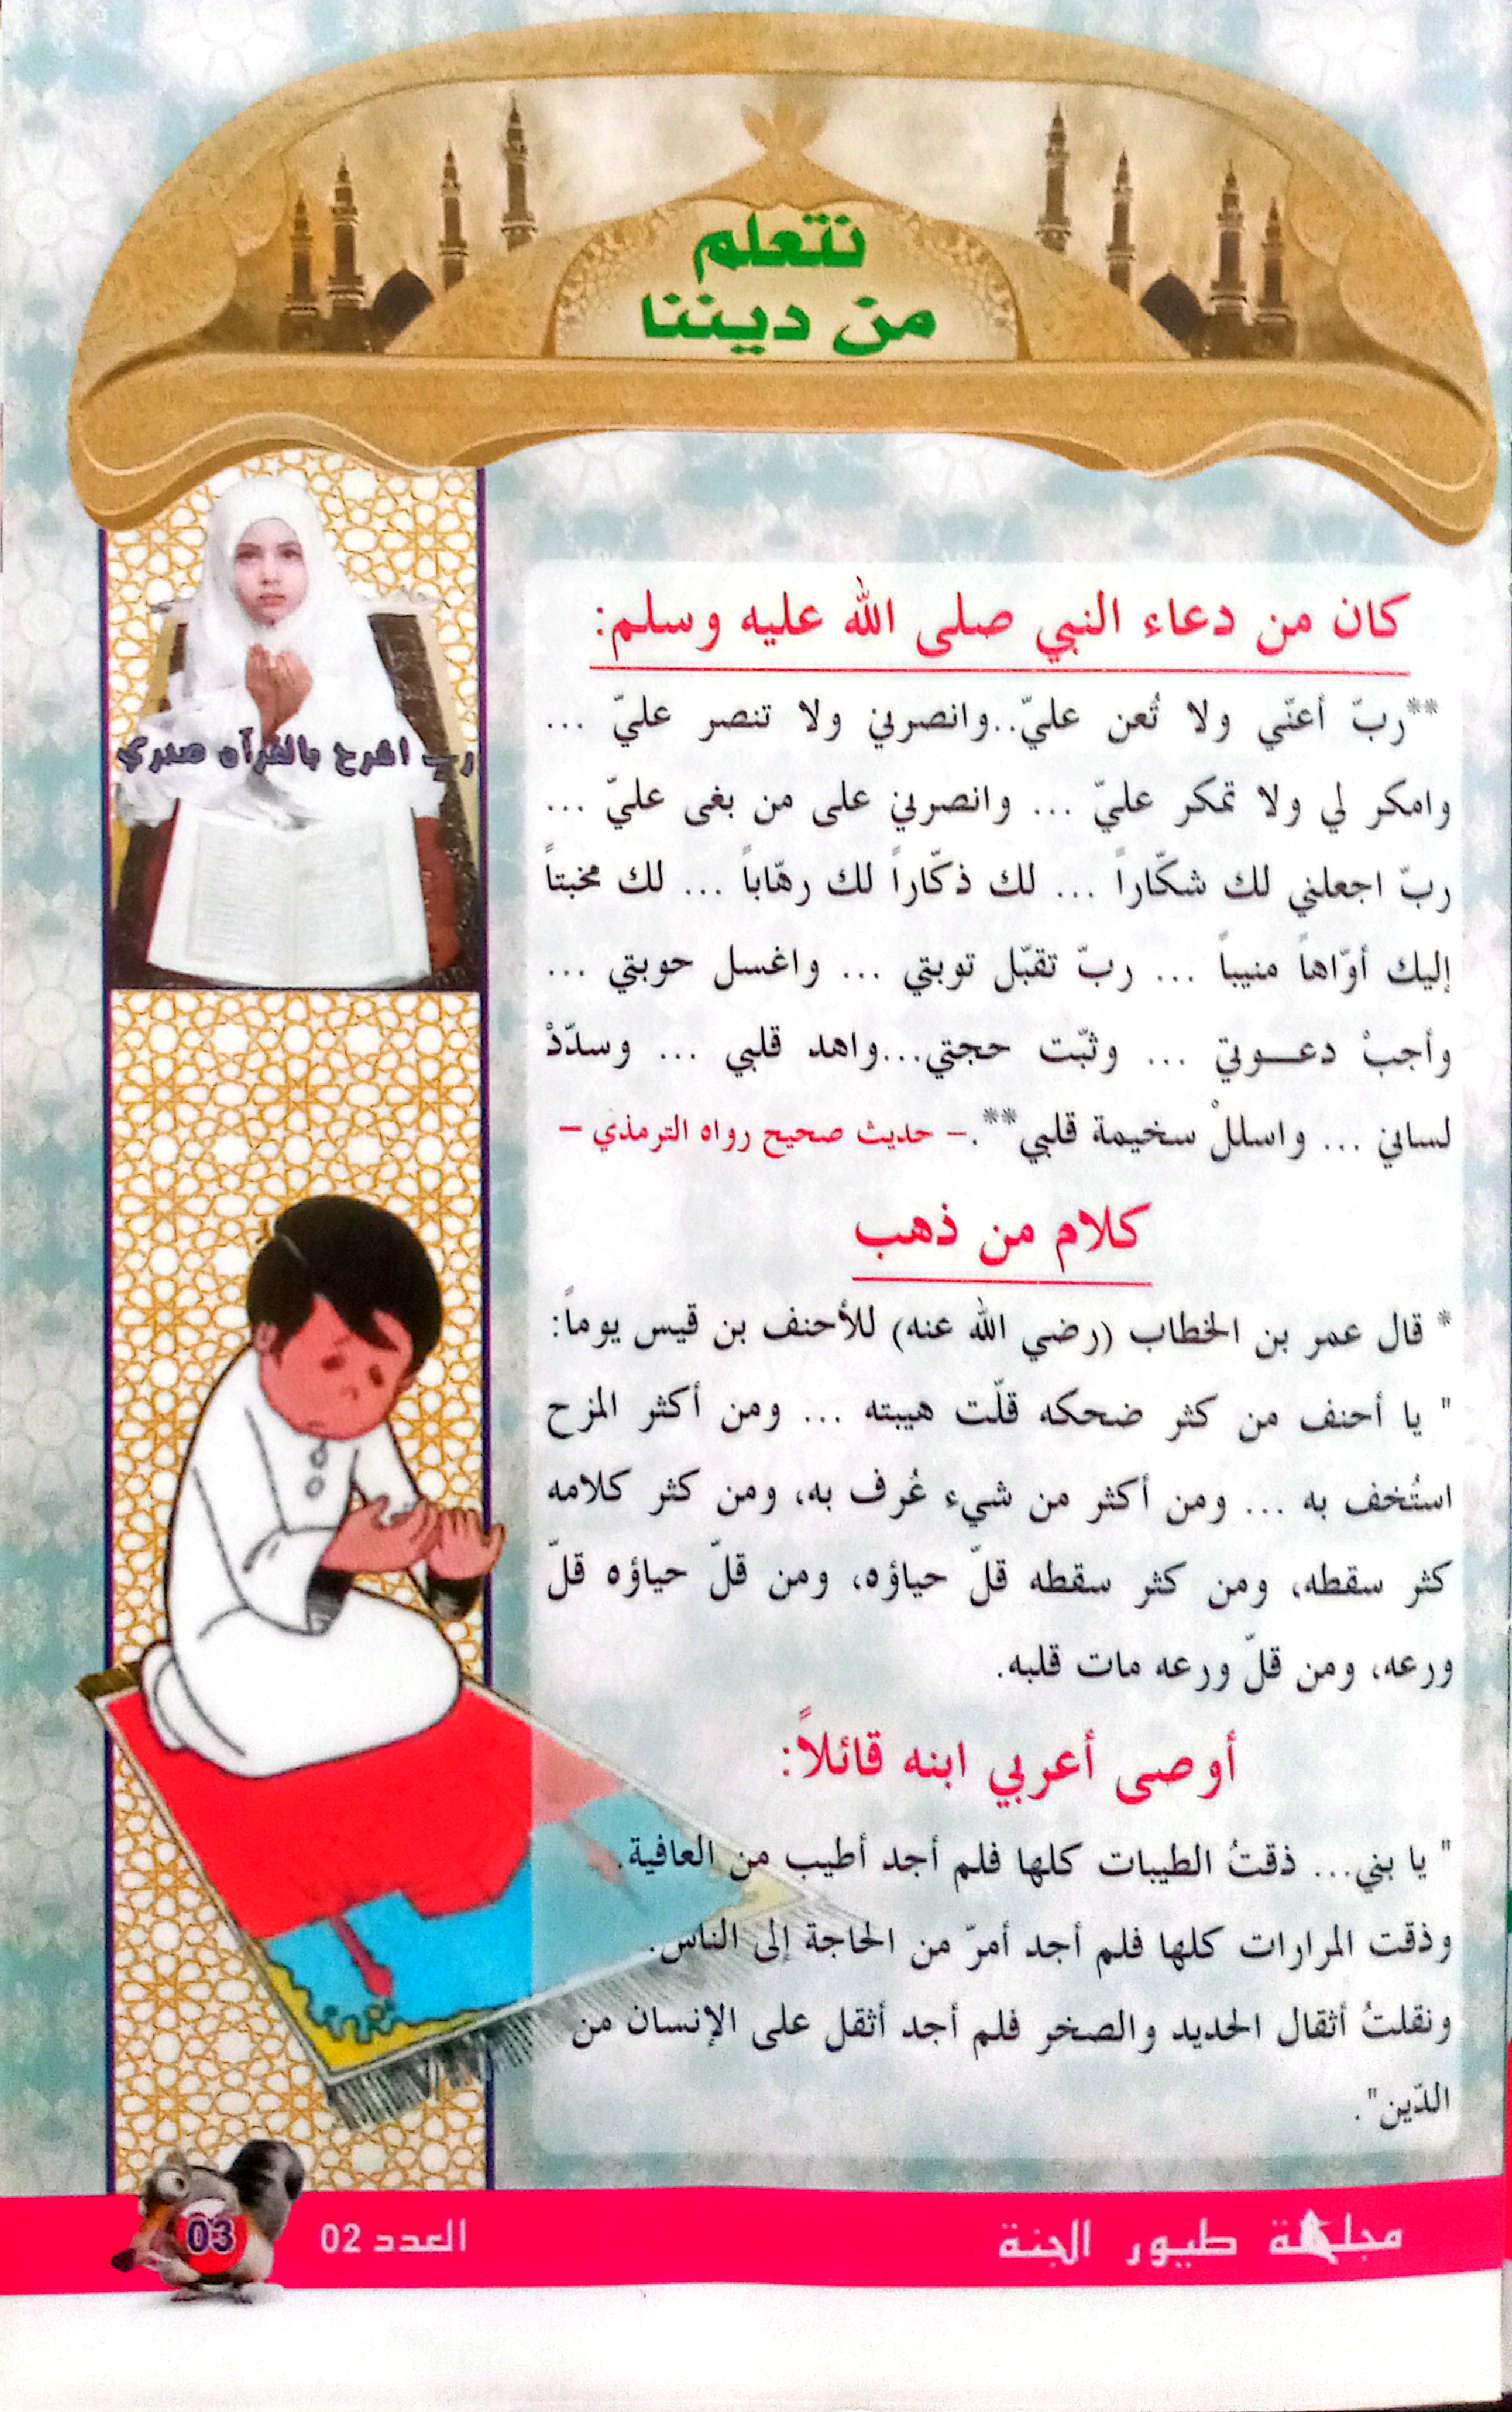 نتعلم
من ديننا
رب اشرح بالقرآن صدري
كان من دعاء النبي صلى الله عليه وسلم:
**ربّ أعنّي ولا تُعن عليّ..وانصرني ولا تنصر عليّ ...
وامكر لي ولا تمكر عليّ ... وانصرني على من بغى عليّ ...
ربّ اجعلني لك شكّاراً ... لك ذكّاراً لك رهّاباً ... لك مخبتاً
إليك أوّاهاً منيباً ... ربّ تقبّل توبتي ... واغسل حوبتي ...
وأجبْ دعـــوتي ... وثبّت حجتي...واهد قلبي ... وسدّدْ
لساني ... واسللْ سخيمة قلبي**.– حديث صحيح رواه الترمذي –
كلام من ذهب
* قال عمر بن الخطاب (رضي الله عنه) للأحنف بن قيس يوماً:
" يا أحنف من كثر ضحكه قلّت هيبته ... ومن أكثر المزح
استُخف به ... ومن أكثر من شيء عُرف به، ومن كثر كلامه
كثر سقطه، ومن كثر سقطه قلّ حياؤه، ومن قلّ حياؤه قلّ
ورعه، ومن قلّ ورعه مات قلبه.
أوصى أعربي ابنه قائلاً:
" يا بني... ذقتُ الطيبات كلها فلم أجد أطيب من العافية.
وذقت المرارات كلها فلم أجد أمرّ من الحاجة إلى الناس.
ونقلتُ أثقال الحديد والصخر فلم أجد أثقل على الإنسان من
الدّين".
مجلة طيور الجنة
العدد 02
03